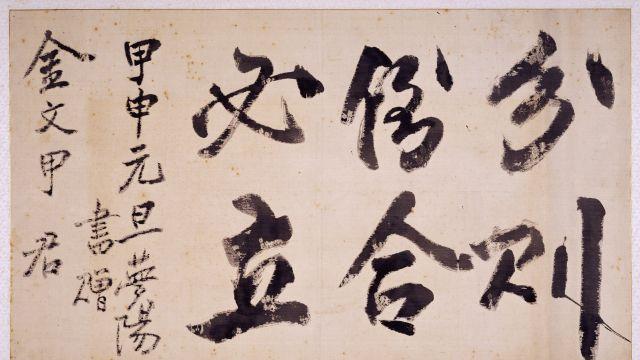 分則
倒合
必立
甲申元旦夢陽
書贈
金文甲君